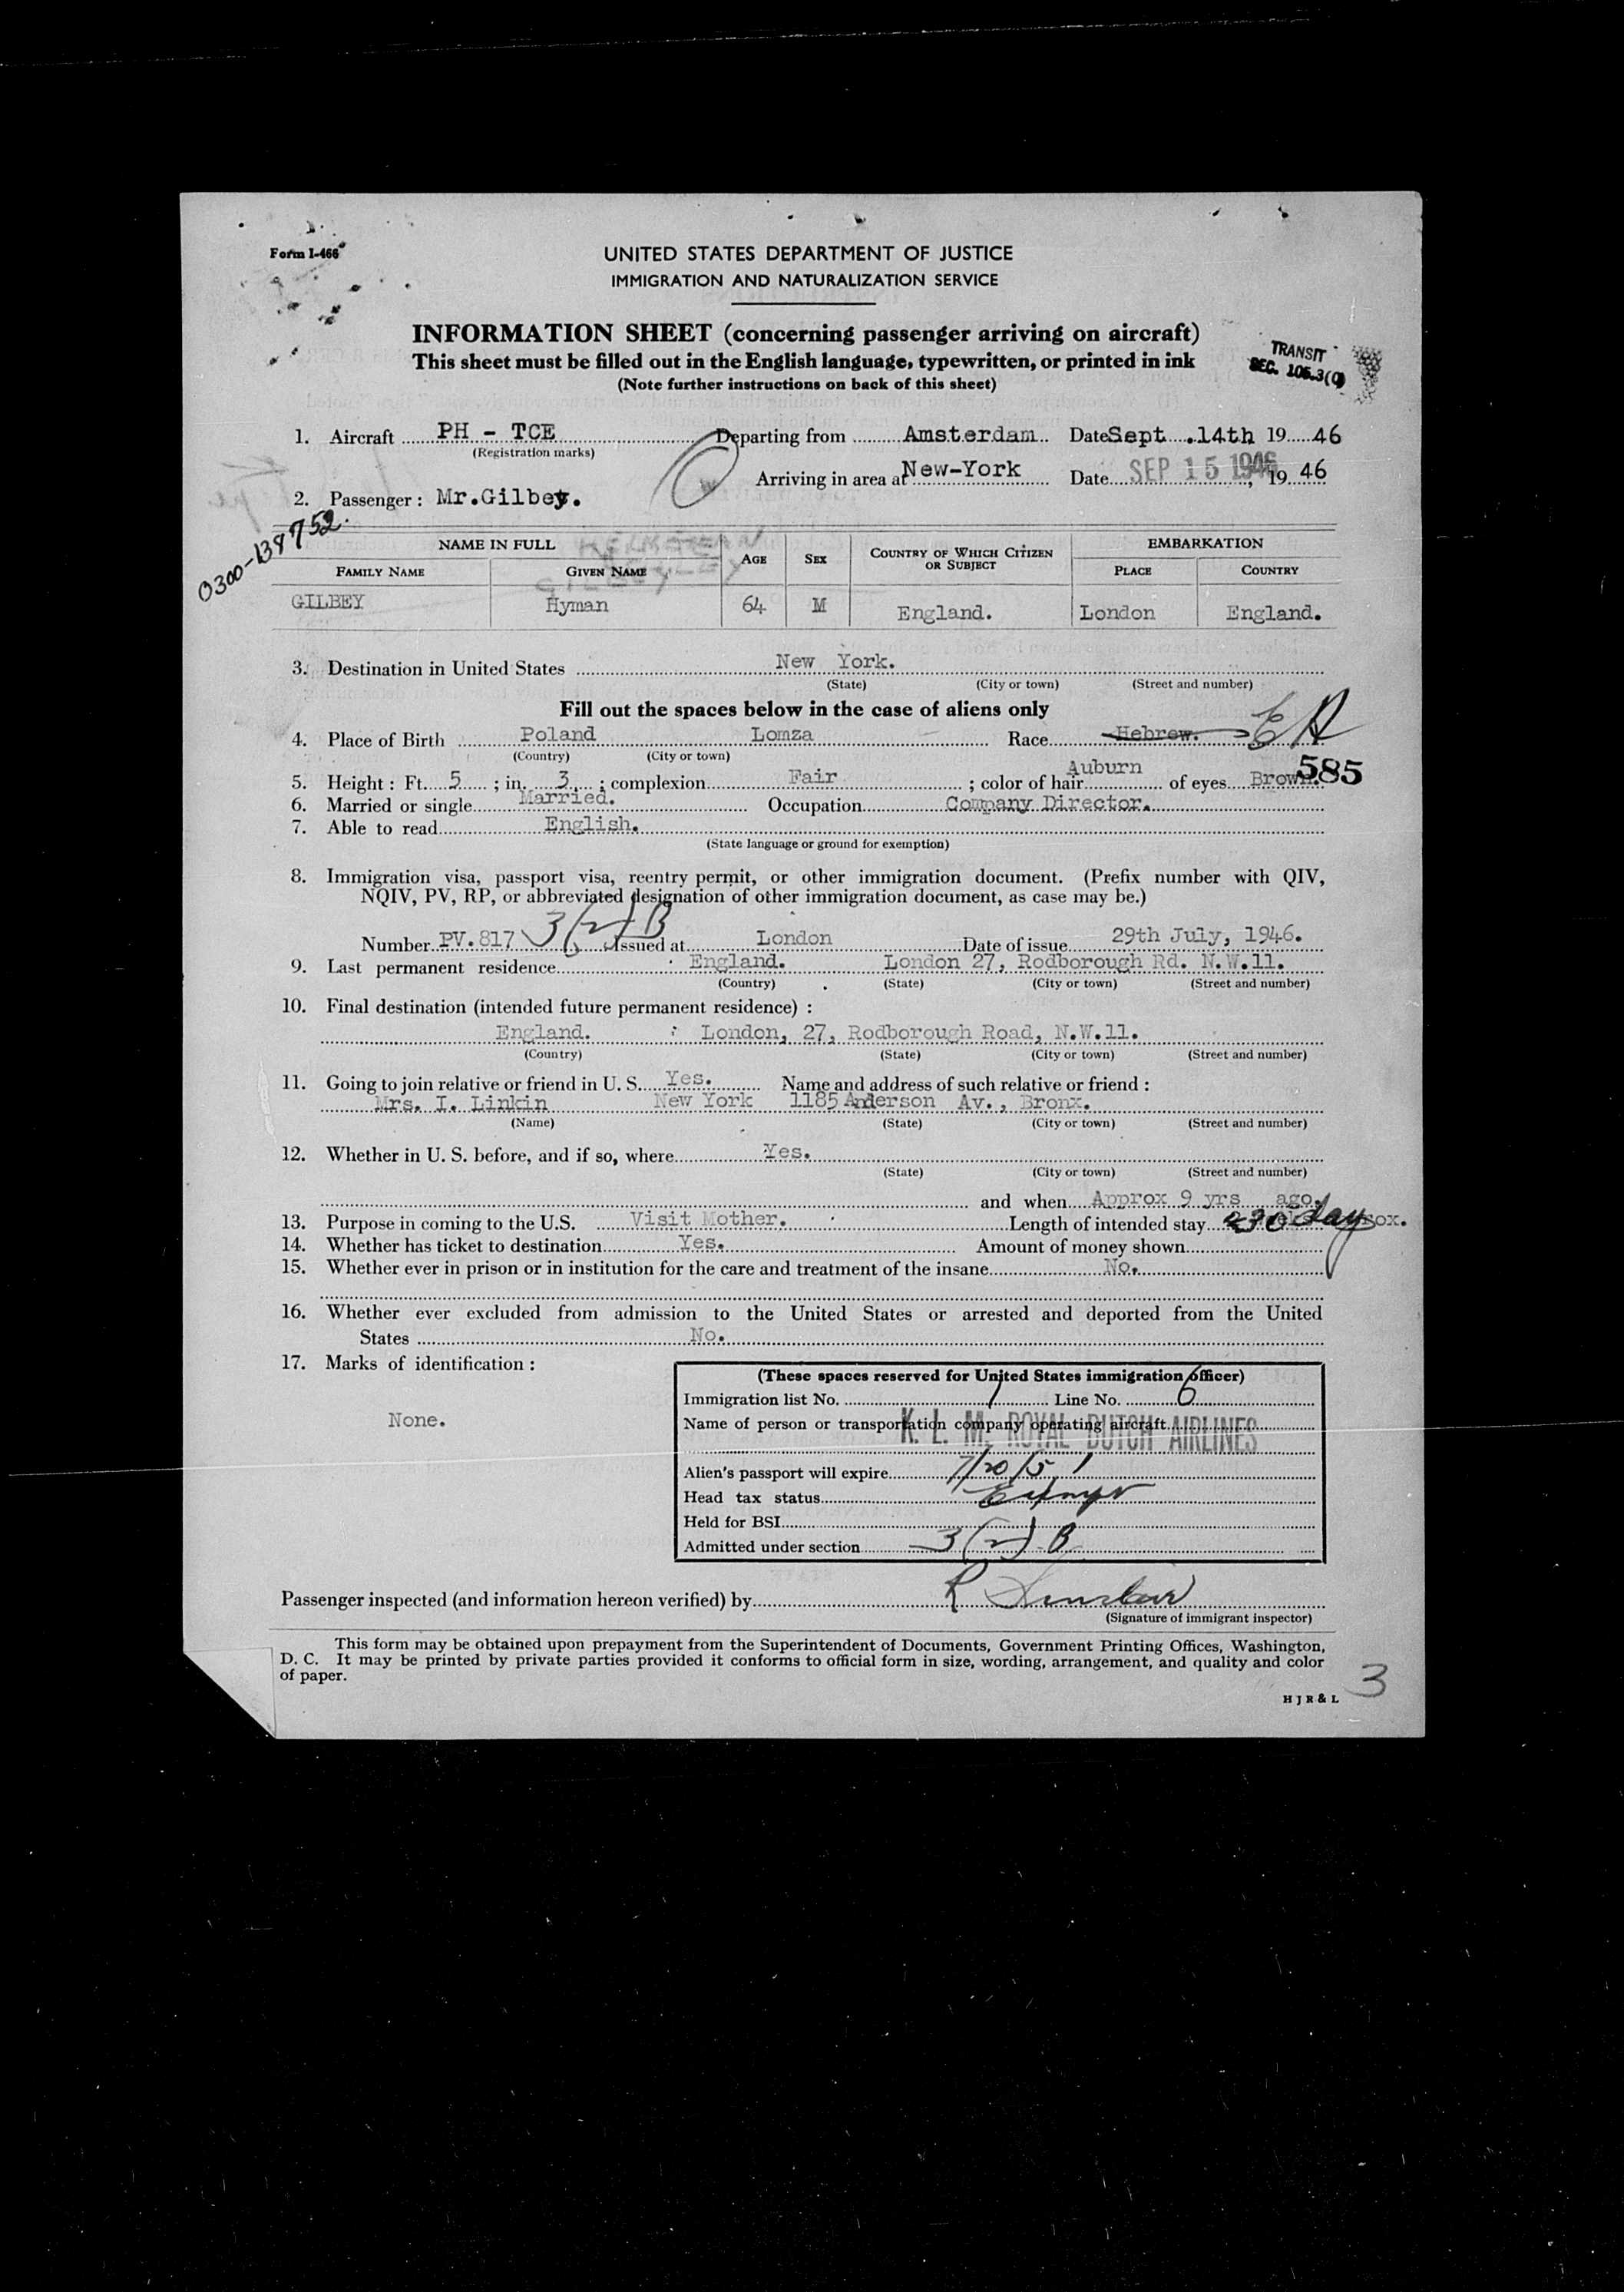 Form I-466
UNITED STATES DEPARTMENT OF JUSTICE
IMMIGRATION AND NATURALIZATION SERVICE
INFORMATION SHEET (concerning passenger arriving on aircraft)
This sheet must be filled out in the English language, typewritten, or printed in ink
(Note further instructions on back of this sheet)
TRANSIT
SEC. 105.3(
1. Aircraft PH - TCE Departing from Amsterdam Date Sept 14th 19 46
(Registration marks)
Arriving in area at New-York Date SEP 15 1946, 19 46
2. Passenger : Mr.Gilbey.
0300-138752.
NAME IN FULL AGE SEX COUNTRY OF WHICH CITIZEN OR SUBJECT EMBARKATION
FAMILY NAME GIVEN NAME PLACE COUNTRY
GILBEY
GILBEY Hyman 64 M England. London England.
3. Destination in United States New York.
(State) (City or town) (Street and number)
Fill out the spaces below in the case of aliens only
4. Place of Birth Poland Lomza Race Hebrew.
(Country) (City or town)
585
5. Height : Ft. 5 ; in. 3 ; complexion Fair ; color of hair Auburn of eyes Brown.
6. Married or single Married. Occupation Company Director.
7. Able to read English.
(State language or ground for exemption)
8. Immigration visa, passport visa, reentry permit, or other immigration document. (Prefix number with QIV,
NQIV, PV, RP, or abbreviated designation of other immigration document, as case may be.)
Number PV.817 3(2)B Issued at London Date of issue 29th July, 1946.
9. Last permanent residence England. London 27, Rodborough Rd. N.W.11.
(Country) (State) (City or town) (Street and number)
10. Final destination (intended future permanent residence) :
England. London, 27, Rodborough Road, N.W.11.
(Country) (State) (City or town) (Street and number)
11. Going to join relative or friend in U. S. Yes. Name and address of such relative or friend :
Mrs. I. Linkin New York 1185 Anderson Av., Bronx.
(Name) (State) (City or town) (Street and number)
12. Whether in U. S. before, and if so, where Yes.
(State) (City or town) (Street and number)
and when Approx 9 yrs ago.
13. Purpose in coming to the U.S. Visit Mother. Length of intended stay 30 day
14. Whether has ticket to destination Yes. Amount of money shown
15. Whether ever in prison or in institution for the care and treatment of the insane No.
16. Whether ever excluded from admission to the United States or arrested and deported from the United
States No.
17. Marks of identification :
None.
(These spaces reserved for United States immigration officer)
Immigration list No. 1 Line No. 6
Name of person or transportation company operating aircraft
K. L. M. ROYAL DUTCH AIRLINES
Alien's passport will expire 7/20/51
Head tax status Exempt
Held for BSI
Admitted under section 3(2) B
Passenger inspected (and information hereon verified) by R Sinclair
(Signature of immigrant inspector)
This form may be obtained upon prepayment from the Superintendent of Documents, Government Printing Offices, Washington,
D. C. It may be printed by private parties provided it conforms to official form in size, wording, arrangement, and quality and color
of paper.
H J R & L
3